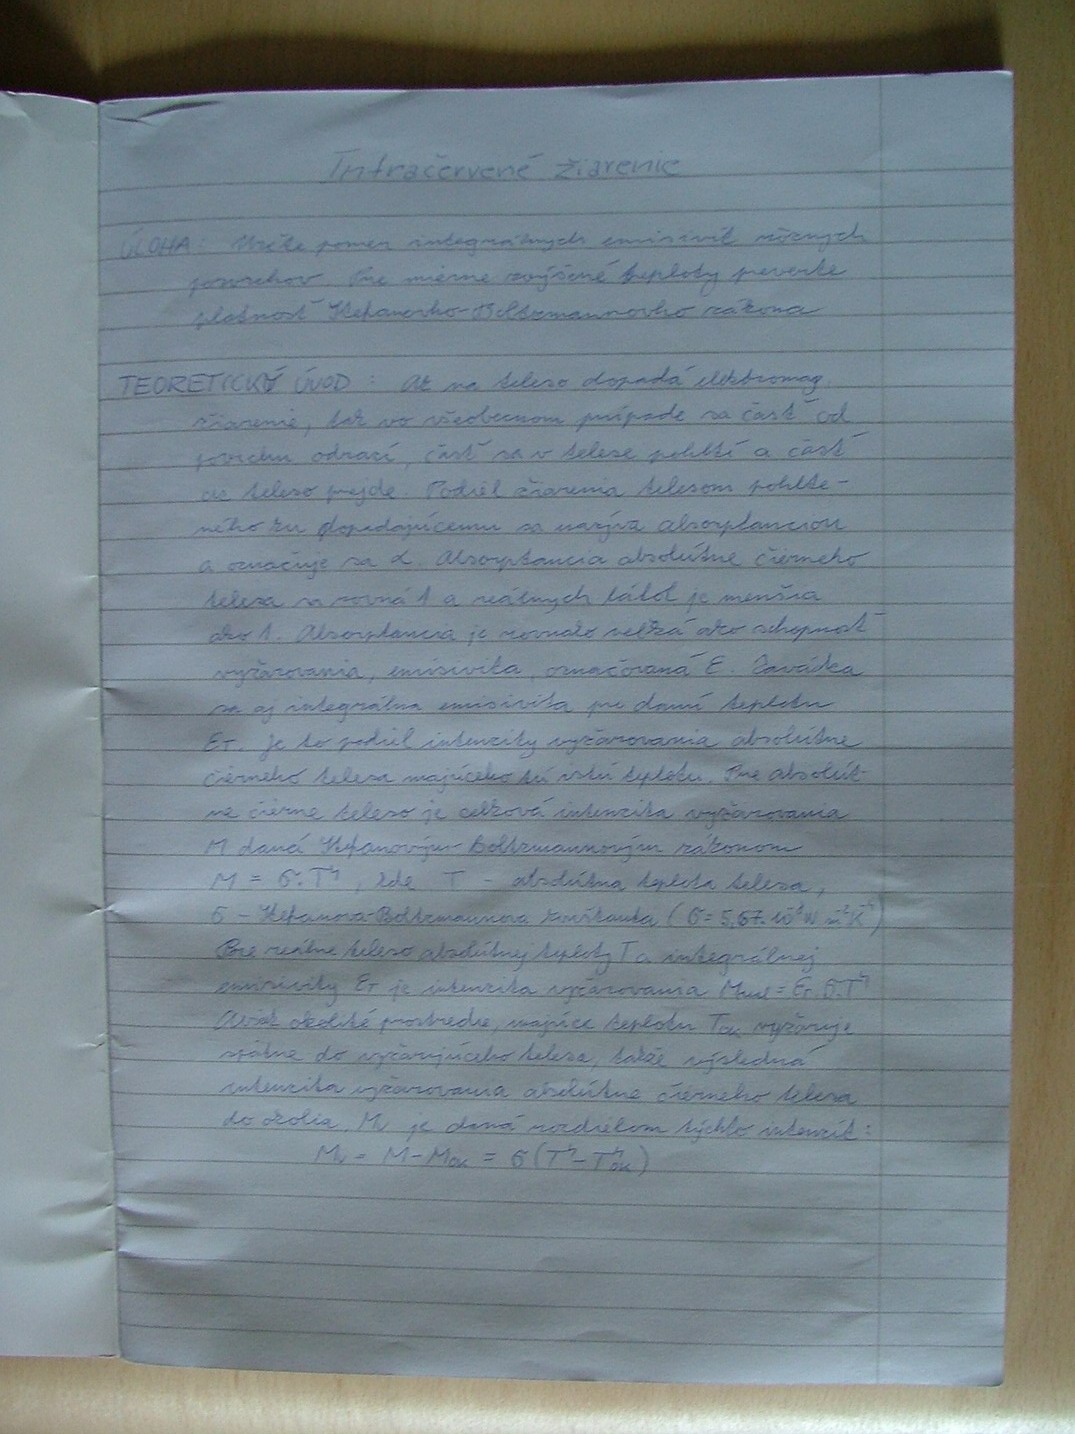 Infračervené žiarenie
ÚLOHA: Určte pomer integrálnych emisivít rôznych
povrchov. Pre mierne zvýšené teploty preverte
platnosť Stefanovho-Boltzmannovho zákona
TEORETICKÝ ÚVOD: Ak na teleso dopadá elektromag.
žiarenie, tak vo všeobecnom prípade sa časť od
povrchu odrazí, časť sa v telese pohltí a časť
cez teleso prejde. Podiel žiarenia telesom pohlte-
ného ku dopadajúcemu sa nazýva absorptanciou
a označuje sa α. Absorptancia absolútne čierneho
telesa sa rovná 1 a reálnych látok je menšia
ako 1. Absorptancia je rovnako veľká ako schopnosť
vyžarovania, emisivita, označovaná ε. Zavádza
sa aj integrálna emisivita pre danú teplotu
ετ. Je to podiel intenzity vyžarovania absolútne
čierneho telesa majúceho tú istú teplotu. Pre absolút-
ne čierne teleso je celková intenzita vyžarovania
M daná Stefanovým-Boltzmannovým zákonom
M = σ.T⁴, kde T - absolútna teplota telesa,
σ - Stefanova-Boltzmannova konštanta (σ = 5,67.10⁻⁸ W m⁻² K⁻⁴)
Pre reálne teleso absolútnej teploty T a integrálnej
emisivity ετ je intenzita vyžarovania = ετ.σ.T⁴
Avšak okolité prostredie, majúce teplotu Tok vyžaruje
spätne do vyžarujúceho telesa, takže výsledná
intenzita vyžarovania absolútne čierneho telesa
do okolia Mv je daná rozdielom týchto intenzít:
Mv = M - Mok = σ(T⁴ - T⁴ok)